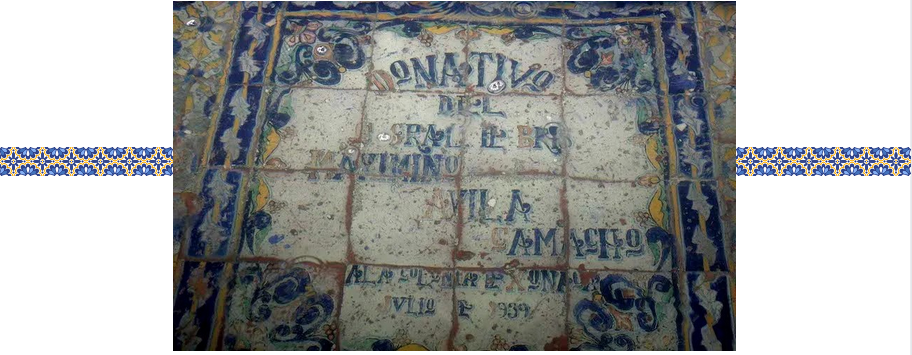 DONATIVO
DEL
GRAL DE BRIG
MAXIMINO
AVILA
CAMACHO
A LA COLONIA DE XONACA
JULIO DE 1939